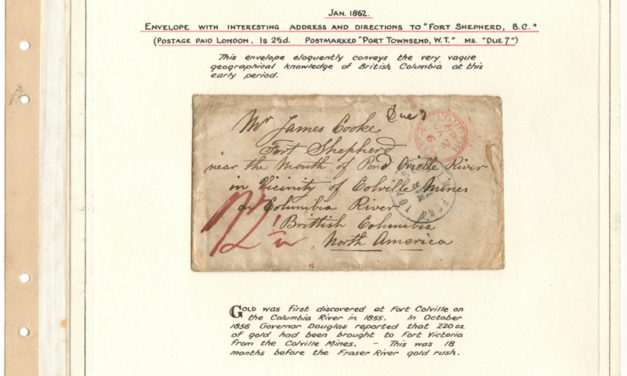 JAN. 1862.
ENVELOPE WITH INTERESTING ADDRESS AND DIRECTIONS TO "FORT SHEPHERD, B.C."
(POSTAGE PAID LONDON. 1s 2½d. POSTMARKED "PORT TOWNSEND, W.T." MS. "DUE 7")
This envelope eloquently conveys the very vague
geographical knowledge of British Columbia at this
early period.
Due 7
Mr James Cooke
Fort Shepherd
near the Mouth of Pond Orielle River
in Vicinity of Colville Mines
on Columbia River
Brittish Columbia
North America
GOLD was first discovered at Fort Colville on
the Columbia River in 1855. In October
1856 Governor Douglas reported that 220 oz
of gold had been brought to Fort Victoria
from the Colville Mines. - This was 18
months before the Fraser River gold rush.